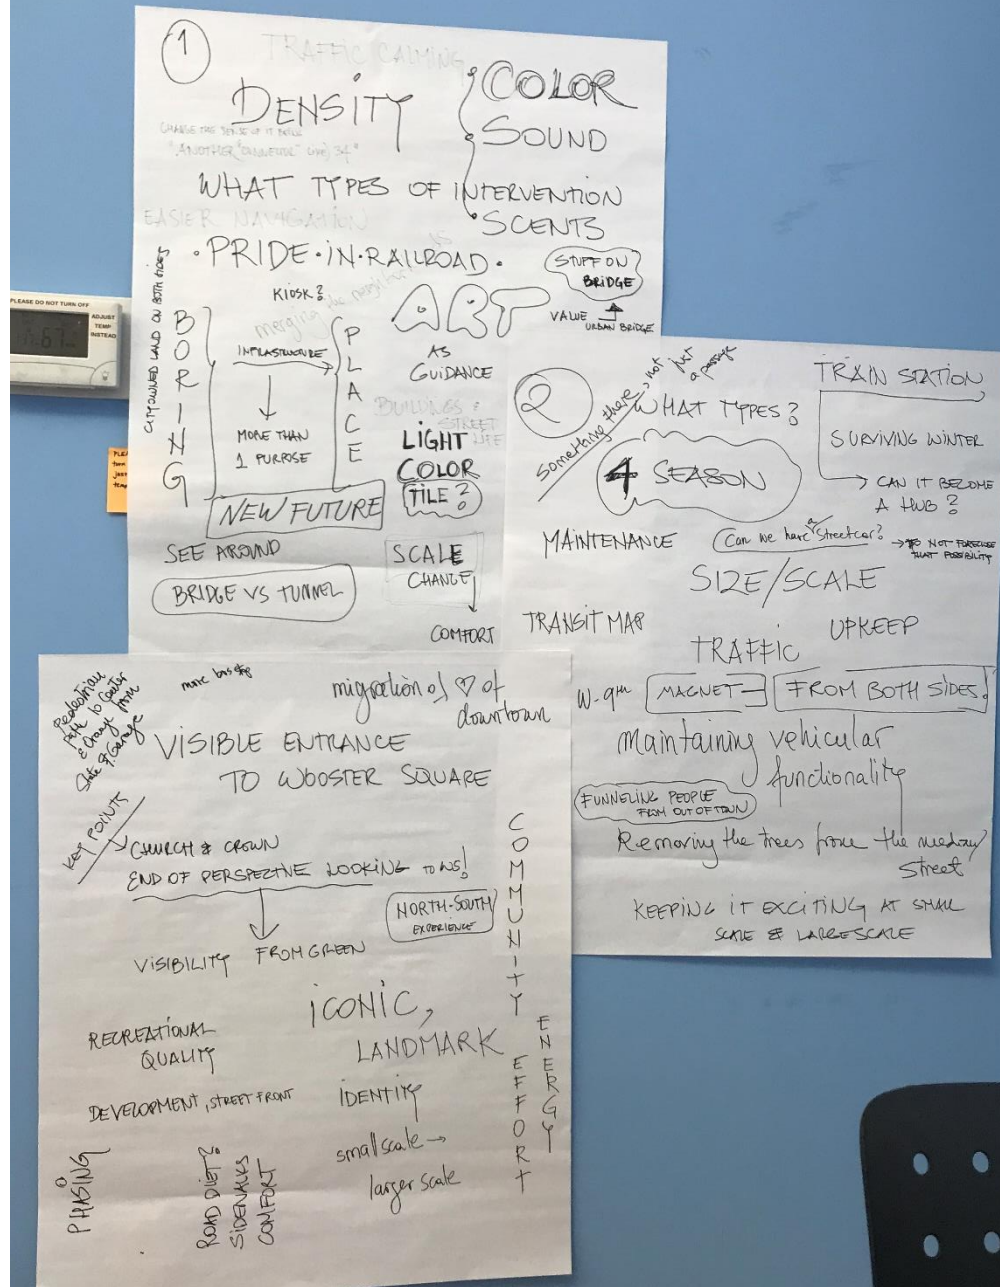 1
TRAFFIC CALMING
DENSITY
COLOR
SOUND
SCENTS
CHANGE THE SENSE OF IT BEING
"ANOTHER "CONNECTOR" (LIKE) 34"
WHAT TYPES OF INTERVENTION
EASIER NAVIGATION
VS
• PRIDE • IN • RAILROAD •
STUFF ON
BRIDGE
VALUE
URBAN BRIDGE
CITY OWNED LAND ON BOTH SIDES
KIOSK?
merging the neighbor
BORING
INFRASTRUCTURE
PLACE
MORE THAN
1 PURPOSE
ART
AS
GUIDANCE
BUILDINGS &
STREET
LIFE
LIGHT
COLOR
TILE?
NEW FUTURE
SEE AROUND
BRIDGE VS TUNNEL
SCALE
CHANGE
COMFORT
PLEASE DO NOT TURN OFF
ADJUST
TEMP
INSTEAD
2
something there, not just
a passage
WHAT TYPES?
4 SEASON
TRAIN STATION
SURVIVING WINTER
CAN IT BECOME
A HUB?
MAINTENANCE
Can we have a streetcar?
TO NOT FORECLOSE
THAT POSSIBILITY
SIZE/SCALE
TRANSIT MAP
TRAFFIC
UPKEEP
W. 9TH
MAGNET
FROM BOTH SIDES!
maintaining vehicular
functionality
FUNNELING PEOPLE
FROM OUT OF TOWN
Removing the trees from the median/
street
KEEPING IT EXCITING AT SMALL
SCALE & LARGE SCALE
Pedestrian
path to Center
& Orange from
State St. Garage
more bus stop
migration of ♡ of
downtown
VISIBLE ENTRANCE
TO WOOSTER SQUARE
KEY POINTS
CHURCH & CROWN
END OF PERSPECTIVE LOOKING TO WS!
NORTH-SOUTH
EXPERIENCE
VISIBILITY FROM GREEN
COMMUNITY EFFORT
ENERGY
ICONIC,
LANDMARK
RECREATIONAL
QUALITY
DEVELOPMENT, STREET FRONT
IDENTITY
small scale →
larger scale
PHASING
ROAD DIET?
SIDEWALKS
COMFORT